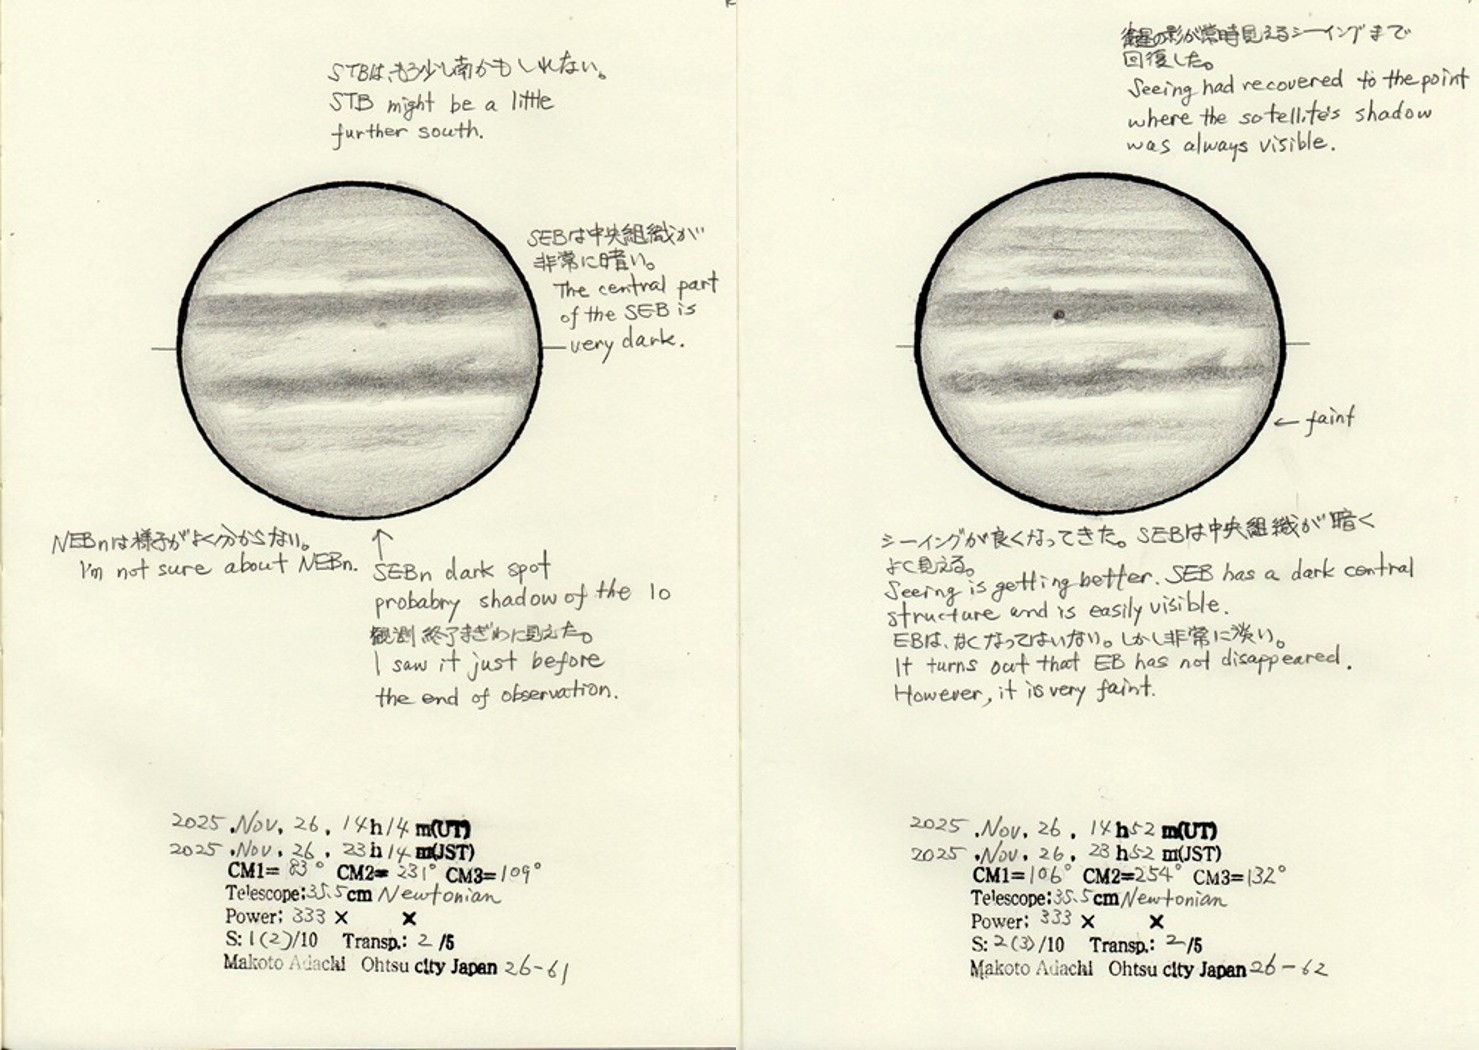 STBは、もう少し南かもしれない。
STB might be a little
further south.
SEBは中央組織が
非常に暗い。
The central part
of the SEB is
very dark.
NEBnは様子がよく分からない。
I'm not sure about NEBn.
SEBn dark spot
probabry shadow of the Io
観測終了まぎわに見えた。
I saw it just before
the end of observation.
2025.Nov. 26. 14h14m(UT)
2025.Nov. 26. 23h14m(JST)
CM1=83° CM2=231° CM3=109°
Telescope:35.5cm Newtonian
Power: 333× ×
S: 1(2)/10 Transp.: 2/5
Makoto Adachi Ohtsu city Japan 26-61
衛星の影が常時見えるシーイングまで
回復した。
Seeing had recovered to the point
where the satellite's shadow
was always visible.
← faint
シーイングが良くなってきた。SEBは中央組織が暗く
よく見える。
Seeing is getting better. SEB has a dark central
structure and is easily visible.
EBは、なくなってはいない。しかし非常に淡い。
It turns out that EB has not disappeared.
However, it is very faint.
2025.Nov. 26. 14h52m(UT)
2025.Nov. 26. 23h52m(JST)
CM1=106° CM2=254° CM3=132°
Telescope:35.5cm Newtonian
Power: 333× ×
S: 2(3)/10 Transp.: 2/5
Makoto Adachi Ohtsu city Japan 26-62